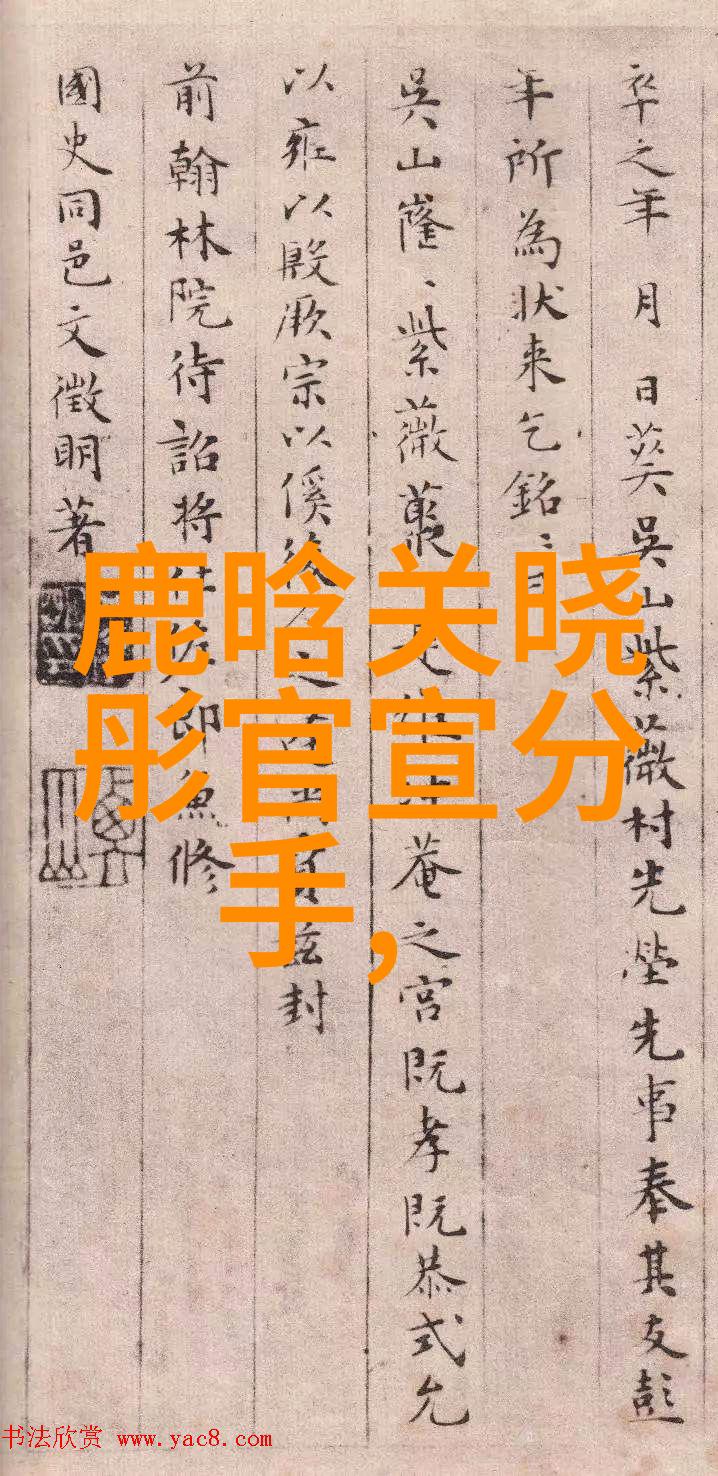 卒之年 月 日葬吳山紫薇村先塋先事奉其友彭
年所為狀来乞銘
吳山窿〻紫薇菴之宫既孝既恭式允
以雍以殷厥宗以傒後封
前翰林院待詔将仕佐郎兼修
國史同邑文徵明著
鹿晗关晓
彤官宣分
手,
书法欣赏 www.yac8.com